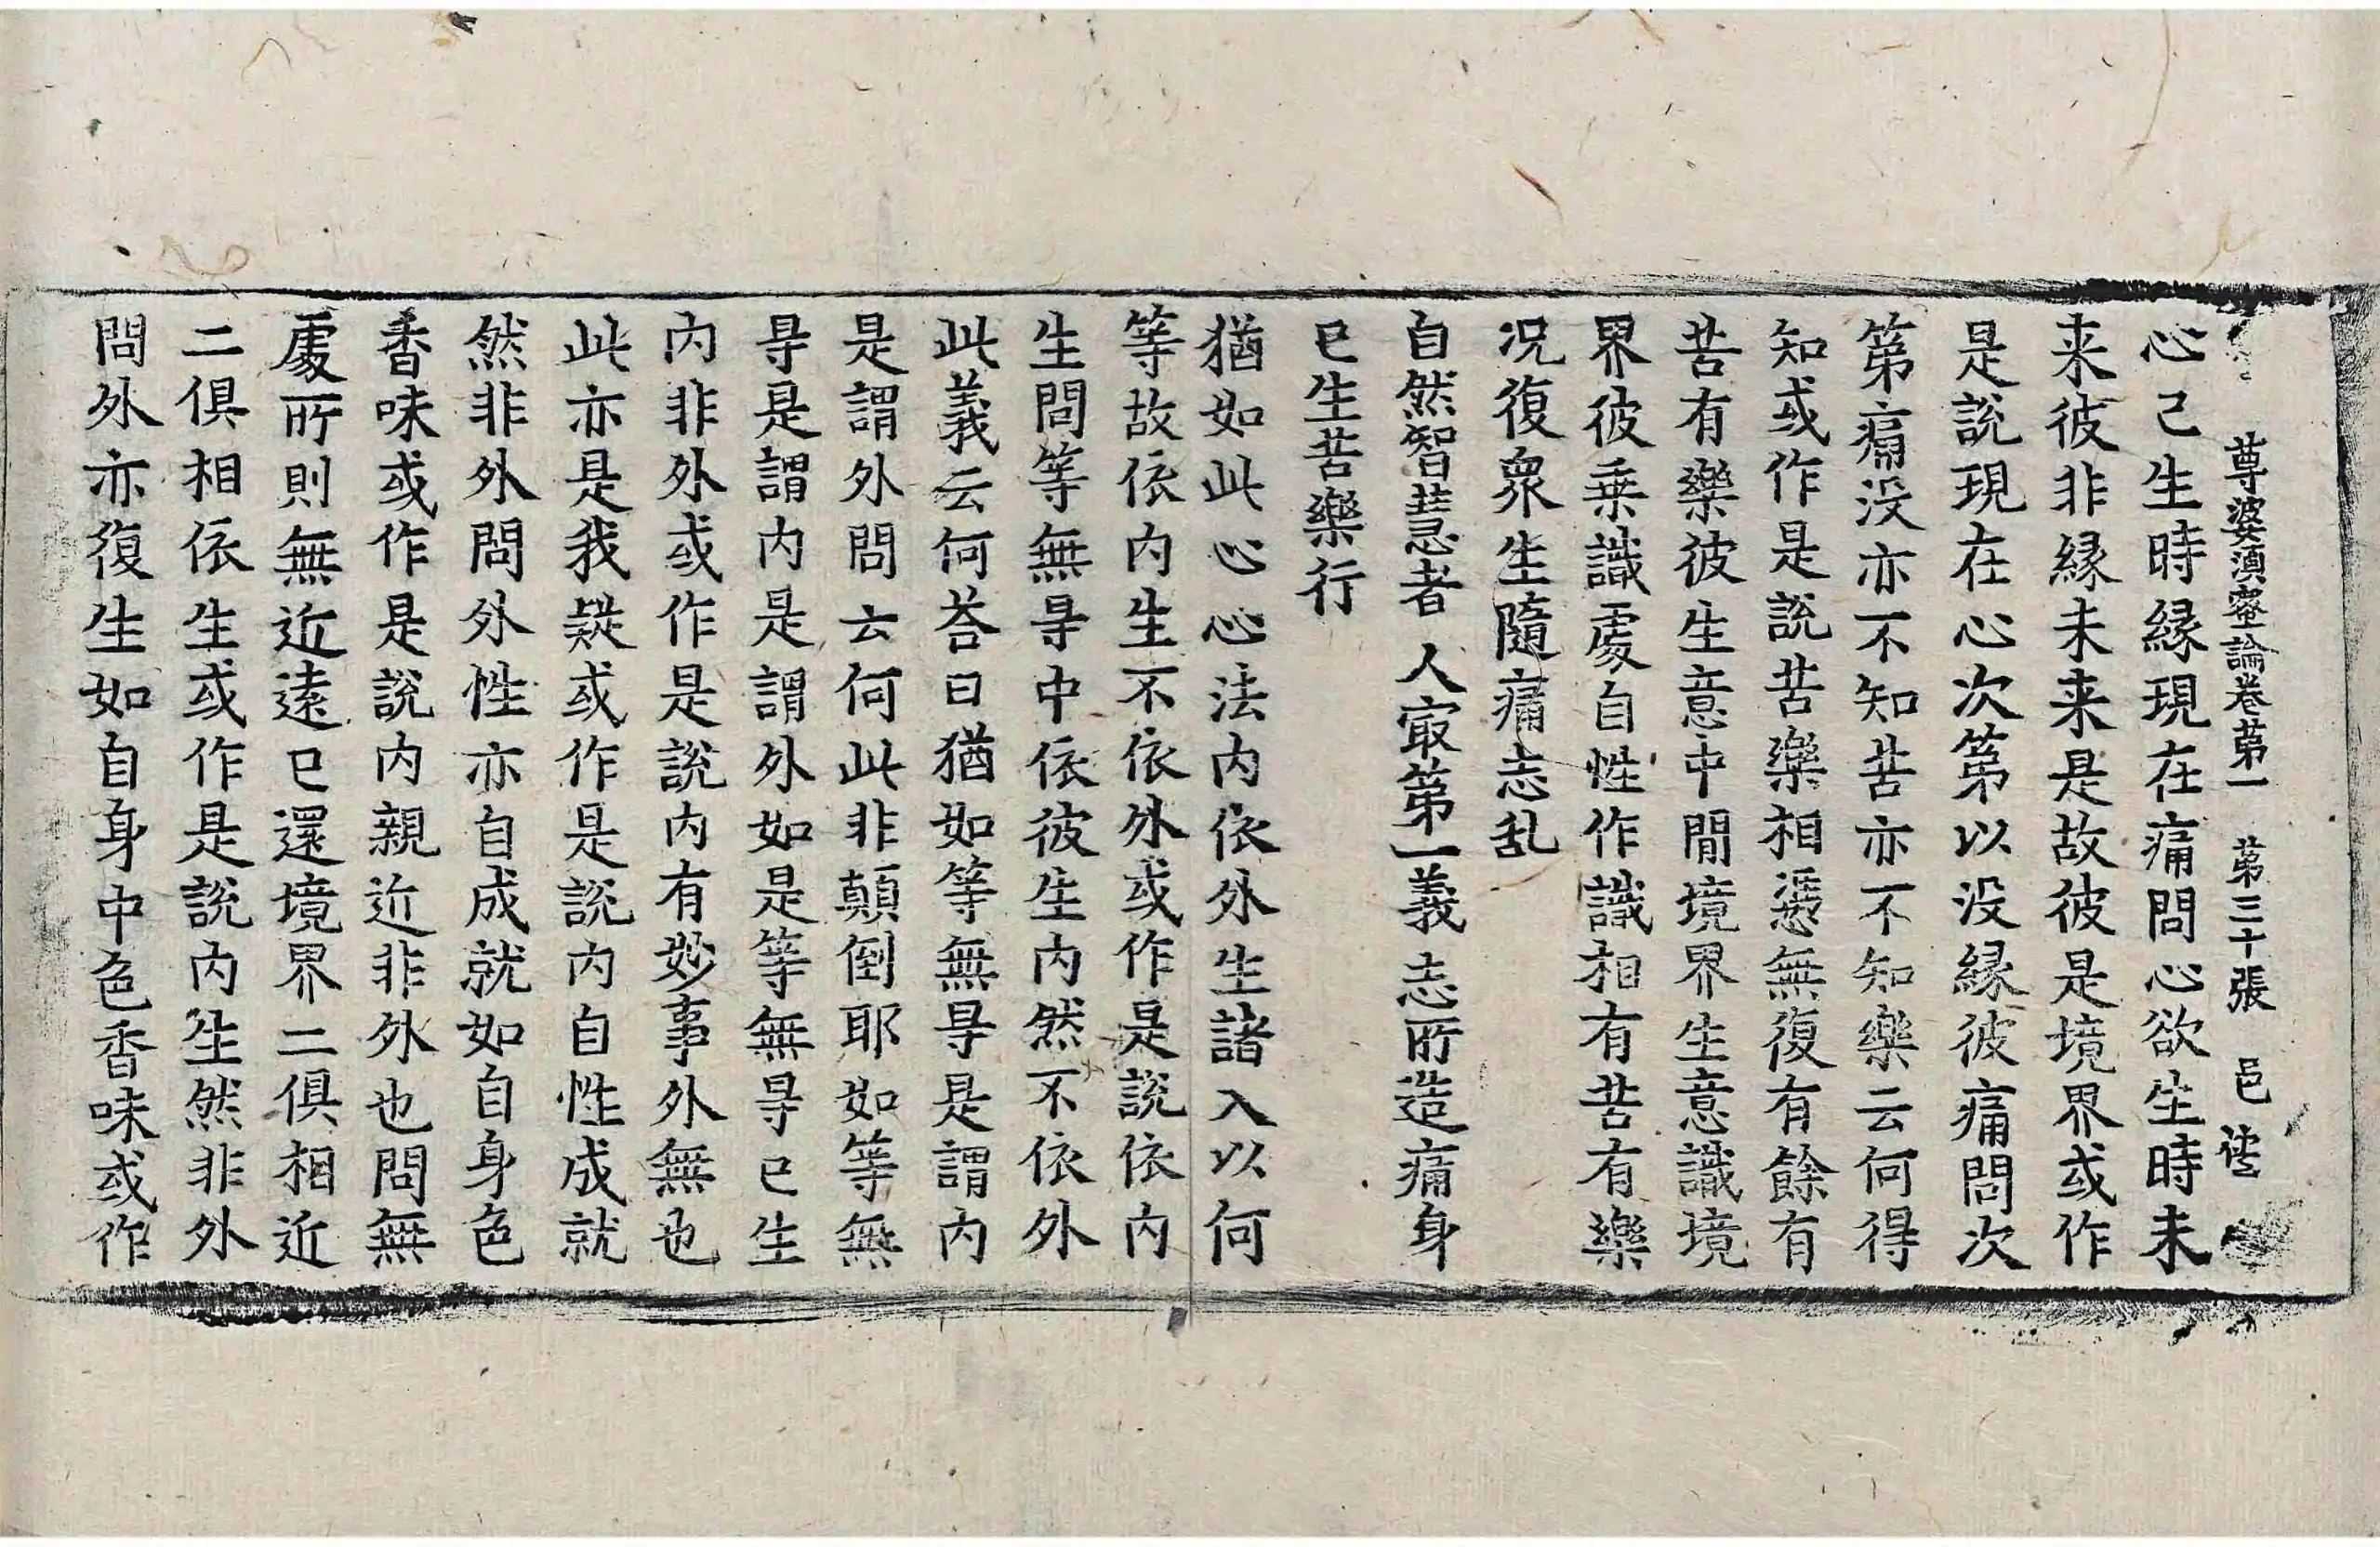 尊婆湏蜜論卷苐一 苐三十張 邑
心已生時緣現在痛問心欲生時未
来彼非緣未来是故彼是境界或作
是說現在心次第以没緣彼痛問次
第痛没亦不知苦亦不知樂云何得
知或作是說苦樂相憑無復有餘有
苦有樂彼生意中間境界生意識境
界彼乗識處自性作識相有苦有樂
况復衆生隨痛志乱
自然智慧者 人㝡第一義 志所造痛身
已生苦樂行
猶如此心心法内依外生諸入以何
等故依内生不依外或作是說依内
生問等無㝵中依彼生内然不依外
此義云何荅曰猶如等無㝵是謂内
是謂外問云何此非顛倒耶如等無
㝵是謂内是謂外如是等無㝵已生
内非外或作是說内有妙事外無也
此亦是我疑或作是說内自性成就
然非外問外性亦自成就如自身色
香味或作是說内親近非外也問無
處所則無近遠已還境界二俱相近
二俱相依生或作是說内生然非外
問外亦復生如自身中色香味或作